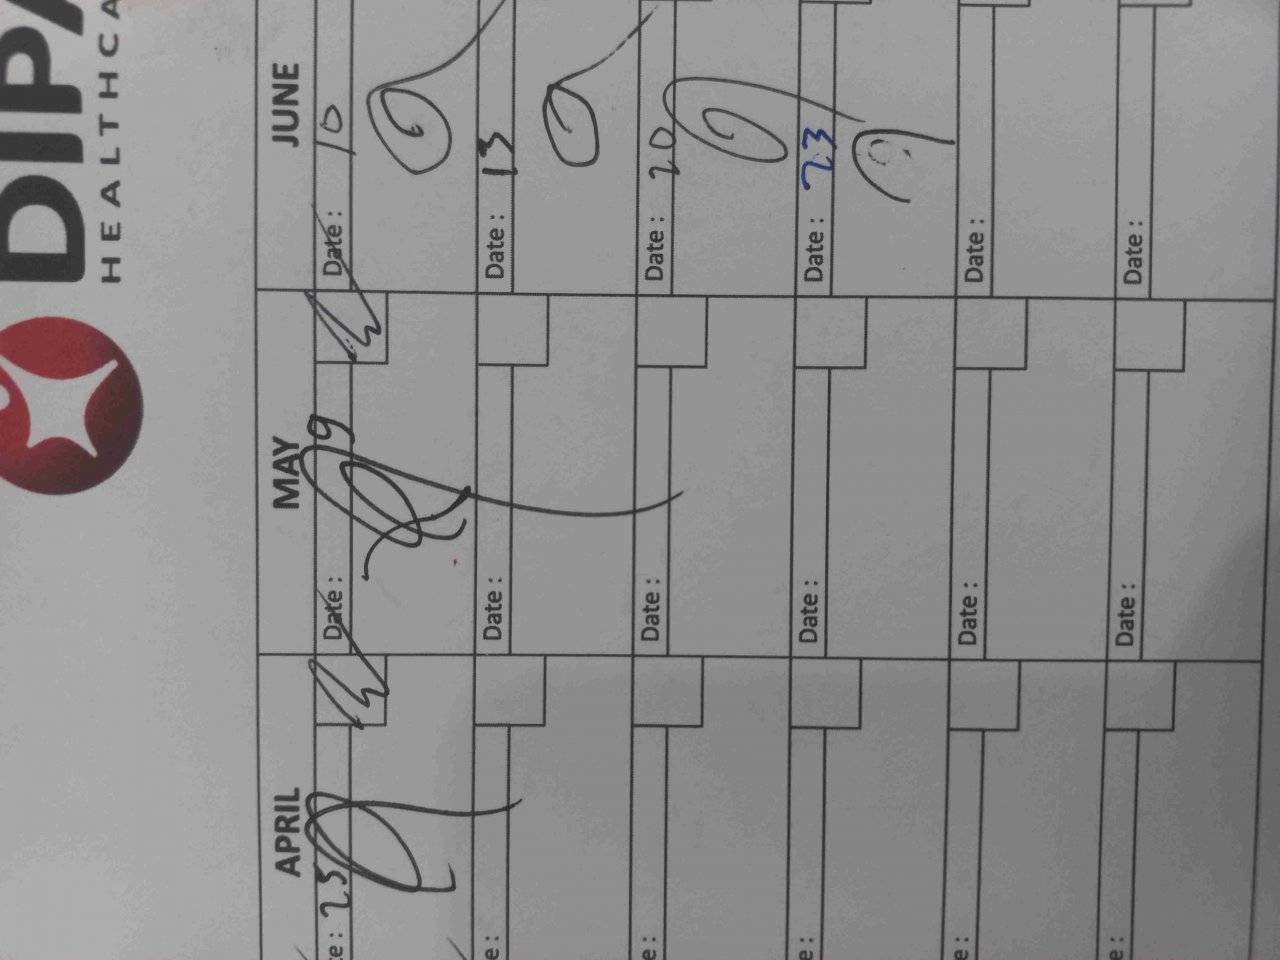 DIPA
HEALTHCA
APRIL MAY JUNE
te : 25 Date : 19 Date : 10
e : Date : Date : 13
e : Date : Date : 20
e : Date : Date : 23
e : Date : Date :
e : Date : Date :